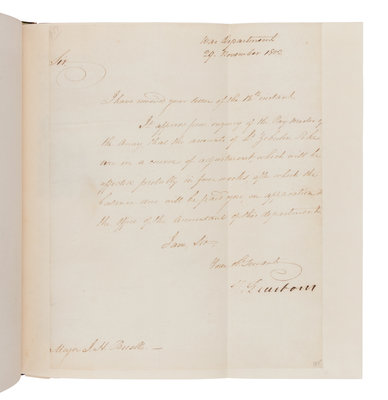 War Department
29. November 1802
Sir
I have received your letter of the 18th instant.
It appears from enquiry of the Pay Master of
the Army that the accounts of Lt. Pike
are in a course of adjustment which will be
effected probably in four weeks after which the
balance due will be paid you on application at
the office of the Accountant of this department
I am Sir
Your Ob. Servant
H. Dearborn
Major